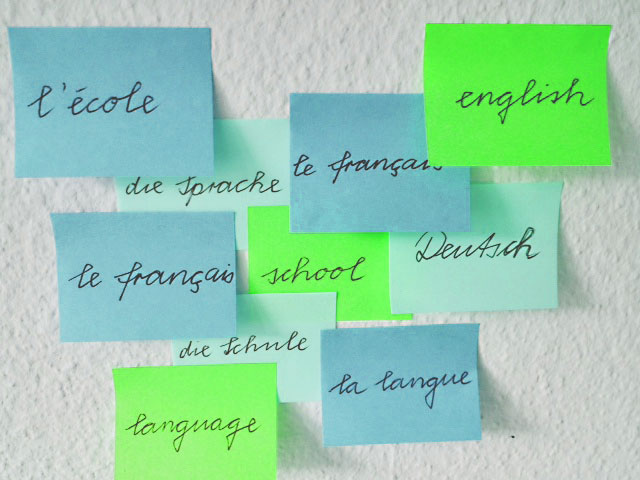 l'école
english
le français
die Sprache
Deutsch
le français
school
die Schule
la langue
language